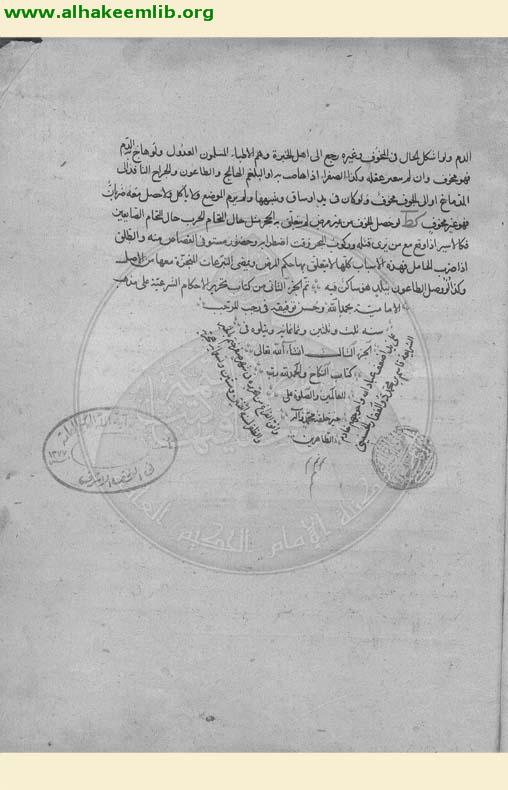 www.alhakeemlib.org
الدم ولو اشكل الحال فى المخوف وغيره رجع الى اهل الخبرة وهم الاطباء المسلمون العدول ولو هاج الدم
فهو مخوف وان لم يتغير عقله وكذا الصفراء اذا هاجت به او البلغم الهايج والطاعون والجراح النافذ الى
الدماغ او الى الجوف مخوف ولو كان فى يد او ساق وشبهها ولم يرم الموضع فلا يأكل فلا حصل معه ضربان
فهو غير مخوف لو حصل الخوف من غير مرض لم يتعلق به الحجر مثل حال التحام الحرب حال التحام الصفين
وكالاسير اذا وقع مع من يرى قتله وركوب البحر وقت اضطرابه وحضور مستوفى القصاص منه والطلق
اذا ضرب الحامل فهذه الاسباب كلها لا يتعلق بها حكم المرض وتمضى التبرعات المنجزة معها من الاصل
وكذا لو حصل الطاعون ببلد هو ساكن فيه تم الجزء الثانى من كتاب تحرير الاحكام الشرعية على مذهب
الامامية بحمد الله وحسن توفيقه فى رجب المرجب
سنة ثلث وثلثين وثمانمائة ويتلوه فى
الجزء الثالث انشاء الله تعالى
كتاب النكاح والحمد لله رب
العالمين والصلوة على
خير خلقه محمد وآله
الطاهرين
على يد اضعف عباد الله
١٣٧٧